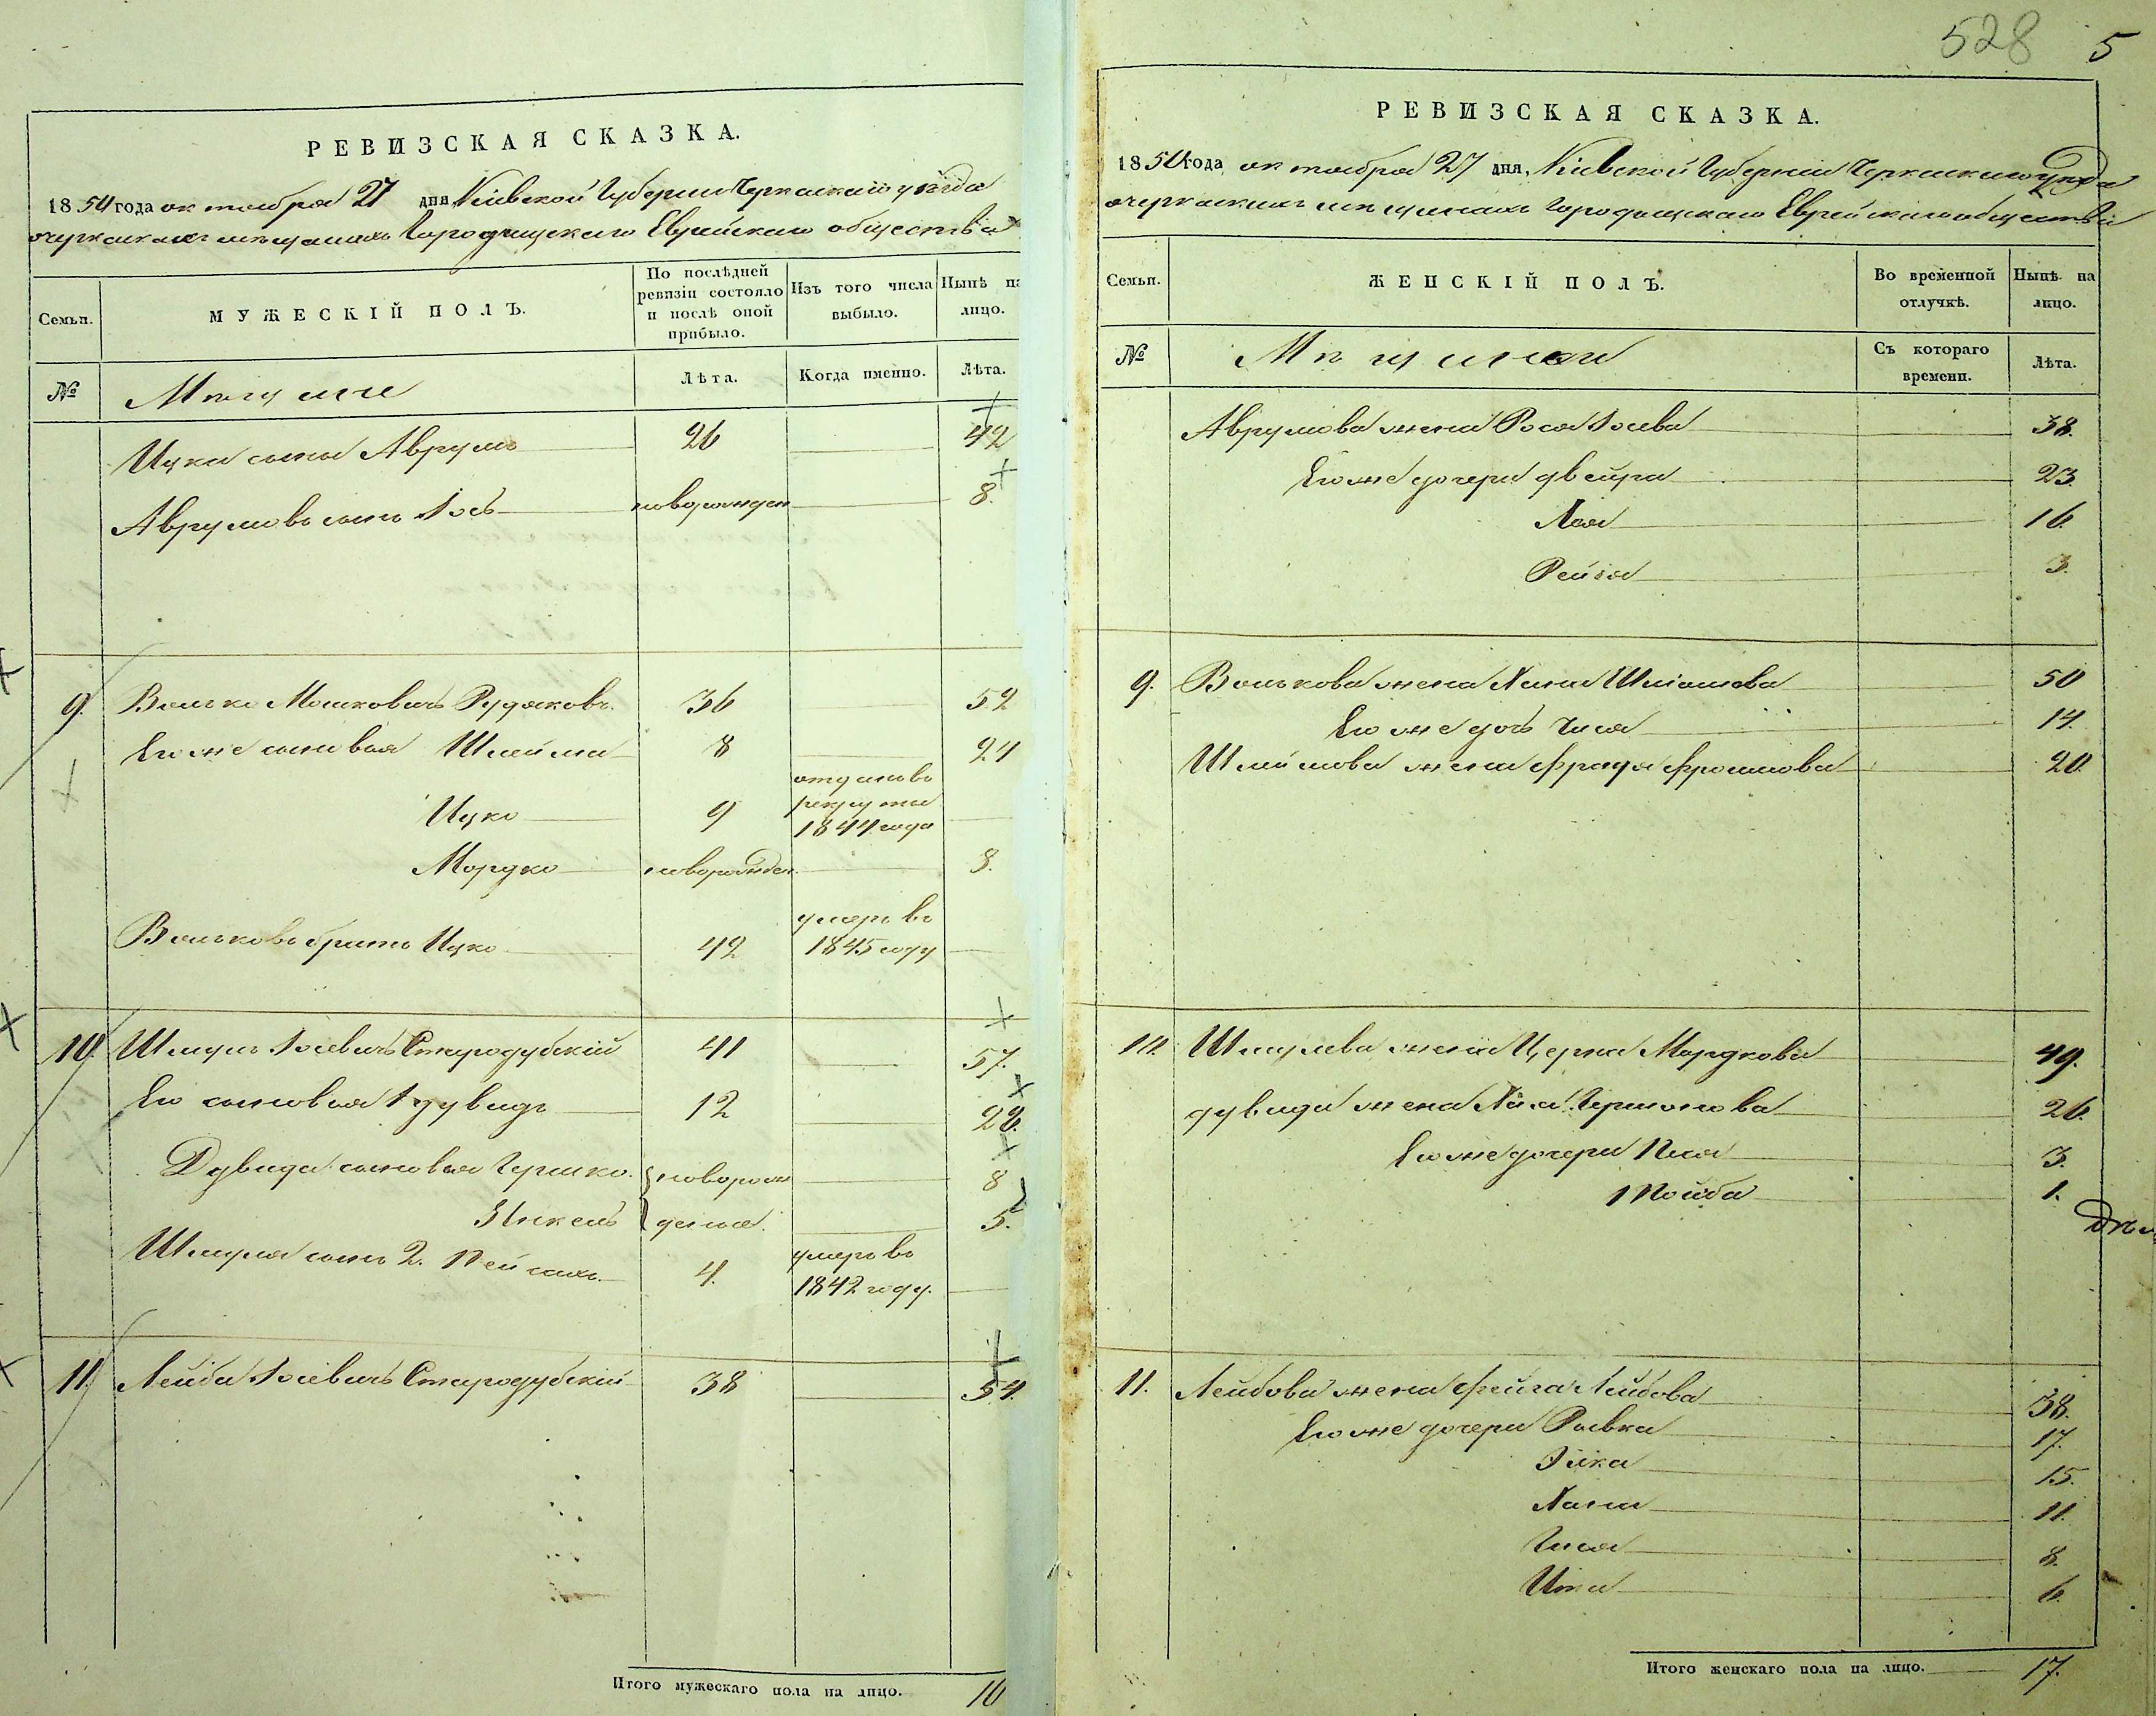 РЕВИЗСКАЯ СКАЗКА.
1850 года октября 27 дня, Кіевской Губерніи Черкаскаго уѣзда
о черкаскихъ мѣщанахъ Городищскаго Еврейскаго общества
Семьи.
МУЖЕСКІЙ ПОЛЪ.
По послѣдней ревизіи состояло и послѣ оной прибыло.
Изъ того числа выбыло.
Нынѣ на лицо.
№
Мѣщане
Лѣта.
Когда именно.
Лѣта.
Ицки сынъ Аврумъ 26 42
Аврумовъ сынъ Іось новорожден 8.
9. Волько Мошковичъ Рудяковъ. 36 52
Его же сыновья Шлейма 8 24
Ицко 9 отданъ въ рекруты 1844 года
Мордко новорожден. 8.
Вольковъ братъ Ицко 42 умеръ въ 1845 году
10. Шмуль Іосевичъ Стародубскій 41 57.
Его сыновья 1 дувидъ 12 28.
Дувида сыновья Гершко. новорож 8
Зінкель денные. 5.
Шмуля сынъ 2. Пейсахъ. 4. умеръ въ 1842 году.
11. Лейба Іосевичъ Стародубскій 38 54.
Итого мужескаго пола на лицо. 10
528 5
РЕВИЗСКАЯ СКАЗКА.
1850 года октября 27 дня, Кіевской Губерніи Черкаскаго уѣзда
о черкаскихъ мѣщанахъ Городищскаго Еврейскаго общества
Семьи.
ЖЕНСКІЙ ПОЛЪ.
Во временной отлучкѣ.
Нынѣ на лицо.
№
Мѣщанки
Съ котораго времени.
Лѣта.
Аврумова жена Рося Іосева 38.
Его же дочери двейра 23.
Лая 16.
Рейзя 3.
9. Волькова жена Хана Шліомова 50
Его же дочь Гися 14.
Шлеймова жена Фрада Фроимова 20.
10. Шмулева жена Церна Мордкова 49.
дувида жена Хая Гершонова 26.
Его же дочери Песя 3.
Тойба 1.
11. Лейбова жена Фейга Лейбова 38.
Его же дочери Ривка 17.
Эйка 15.
Хана 11.
Гися 8.
Ита 6.
Итого женскаго пола на лицо. 17.